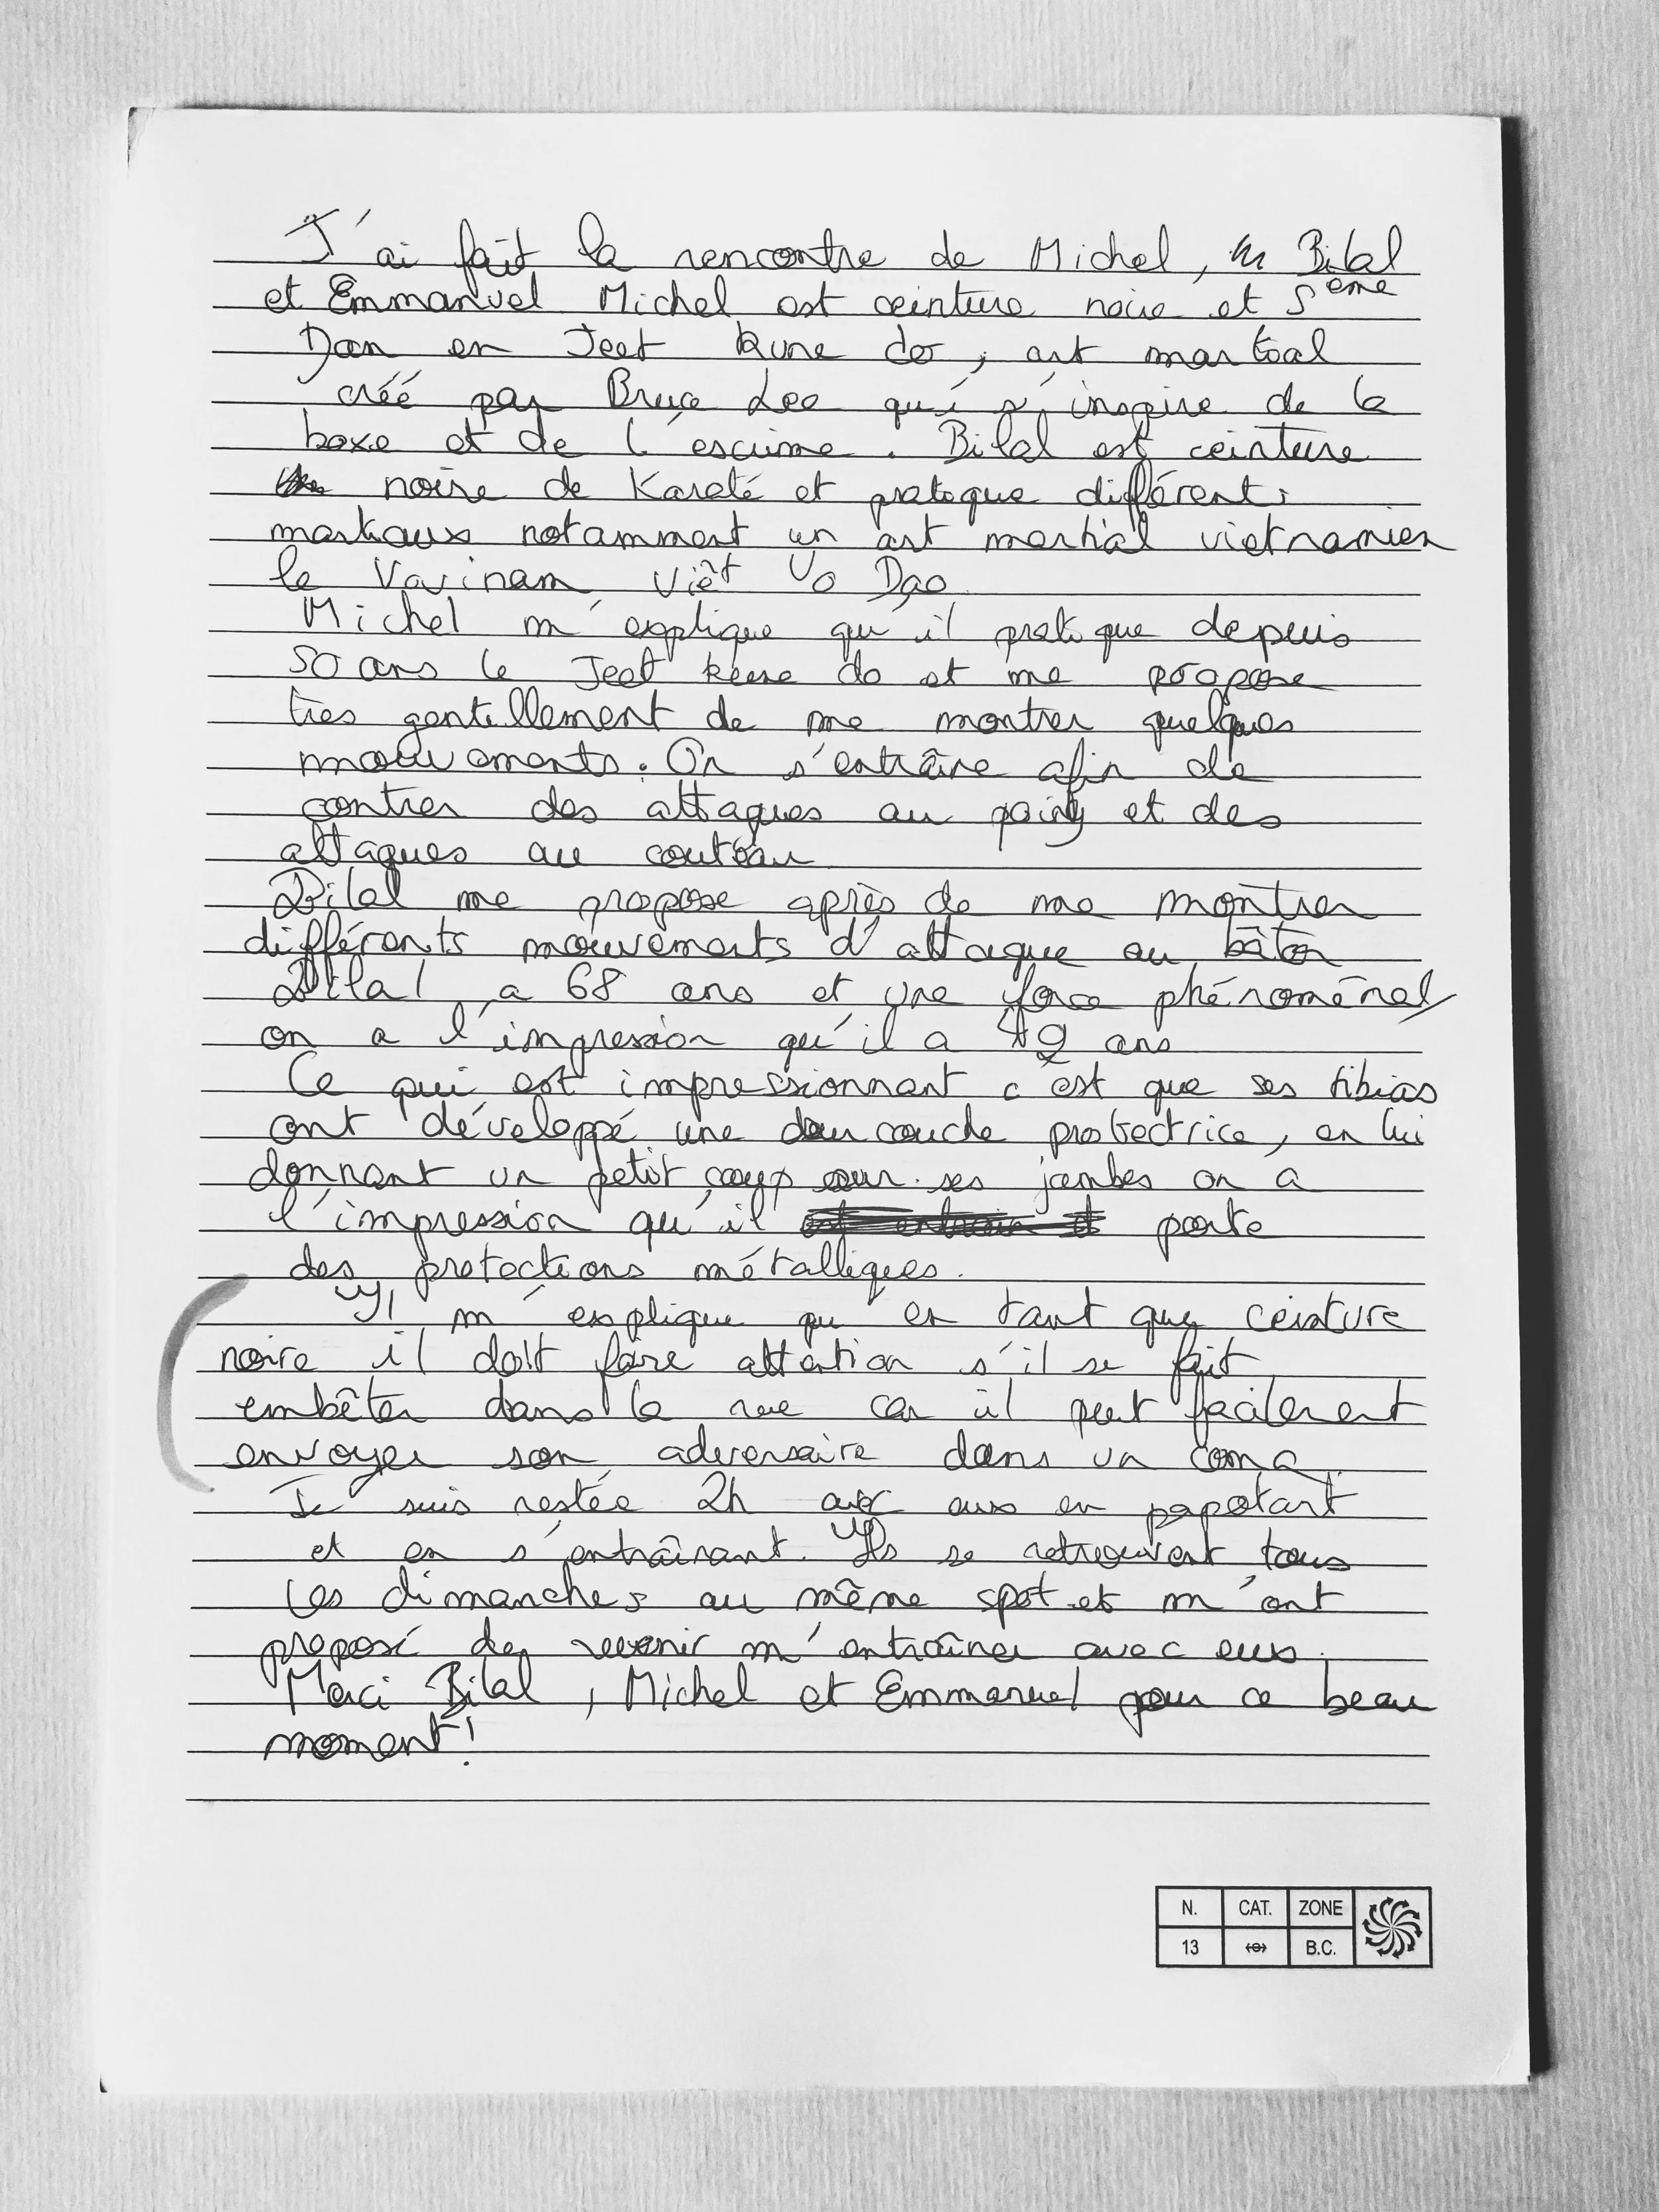 J'ai fait la rencontre de Michel, Bilal
et Emmanuel Michel est ceinture noire et 5ème
Dan en Jeet kune do, art martial
créé par Bruce Lee qui s'inspire de la
boxe et de l'escrime. Bilal est ceinture
noire de Karaté et pratique différents
martiaux notamment un art martial vietnamien
le Vovinam Viêt Vo Dao
Michel m'explique qu'il pratique depuis
50 ans le Jeet kune do et me propose
très gentillement de me montrer quelques
mouvements. On s'entraîne afin de
contrer des attaques au poing et des
attaques au couteau
Bilal me propose après de me montrer
différents mouvements d'attaque au bâton
Bilal a 68 ans et une force phénoménal
on a l'impression qu'il a ans
Ce qui est impressionnant c'est que ses tibias
ont développé une couche protectrice, en lui
donnant un petit coup sur ses jambes on a
l'impression qu'il porte
des protections métalliques.
Il m'explique qu'en tant que ceinture
noire il doit faire attention s'il se fait
embêter dans la rue car il peut facilement
envoyer son adversaire dans un coma
Je suis restée 2h avec eux en papotant
et en s'entraînant. Ils se retrouvent tous
les dimanches au même spot et m'ont
proposé de revenir m'entraîner avec eux.
Merci Bilal, Michel et Emmanuel pour ce beau
moment!
N. CAT. ZONE
13 B.C.